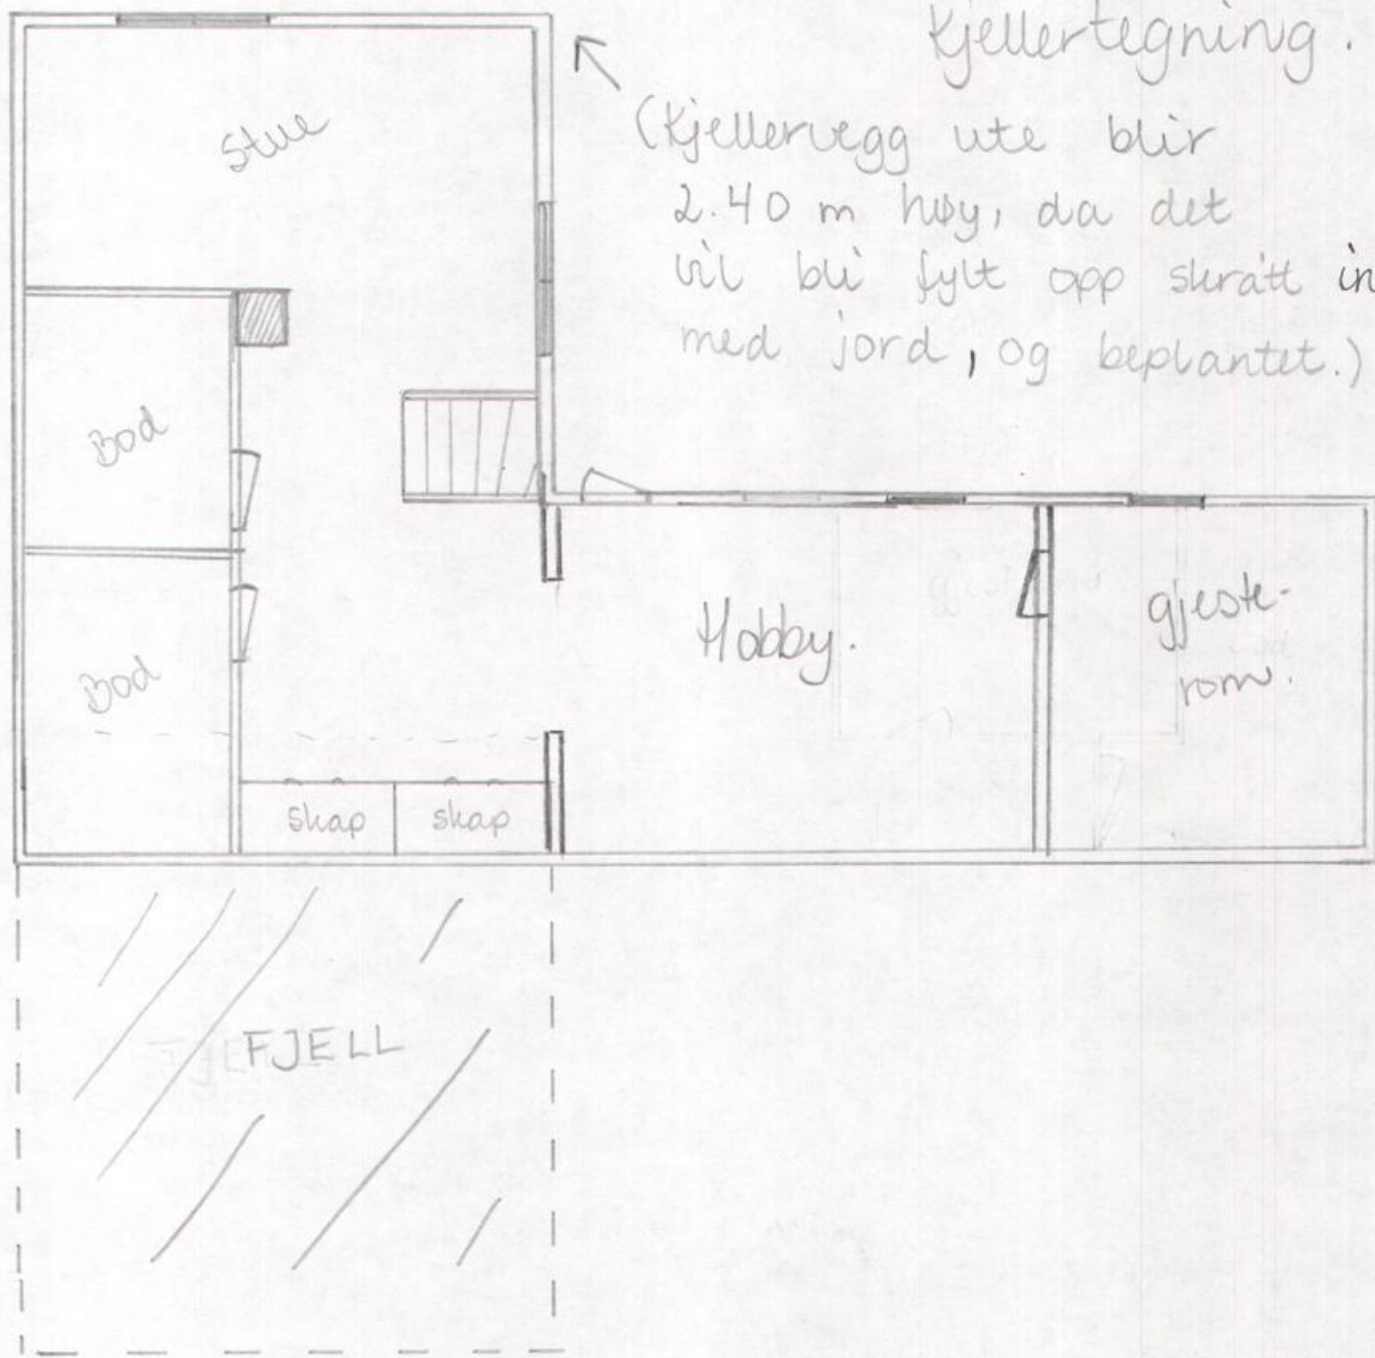 Kjellertegning.
(Kjellervegg ute blir
2.40 m høy, da det
vil bli fylt opp skrått in
med jord, og beplantet.)
Stue
Bod
Bod
Hobby.
gjeste-
rom.
skap
skap
FJELL